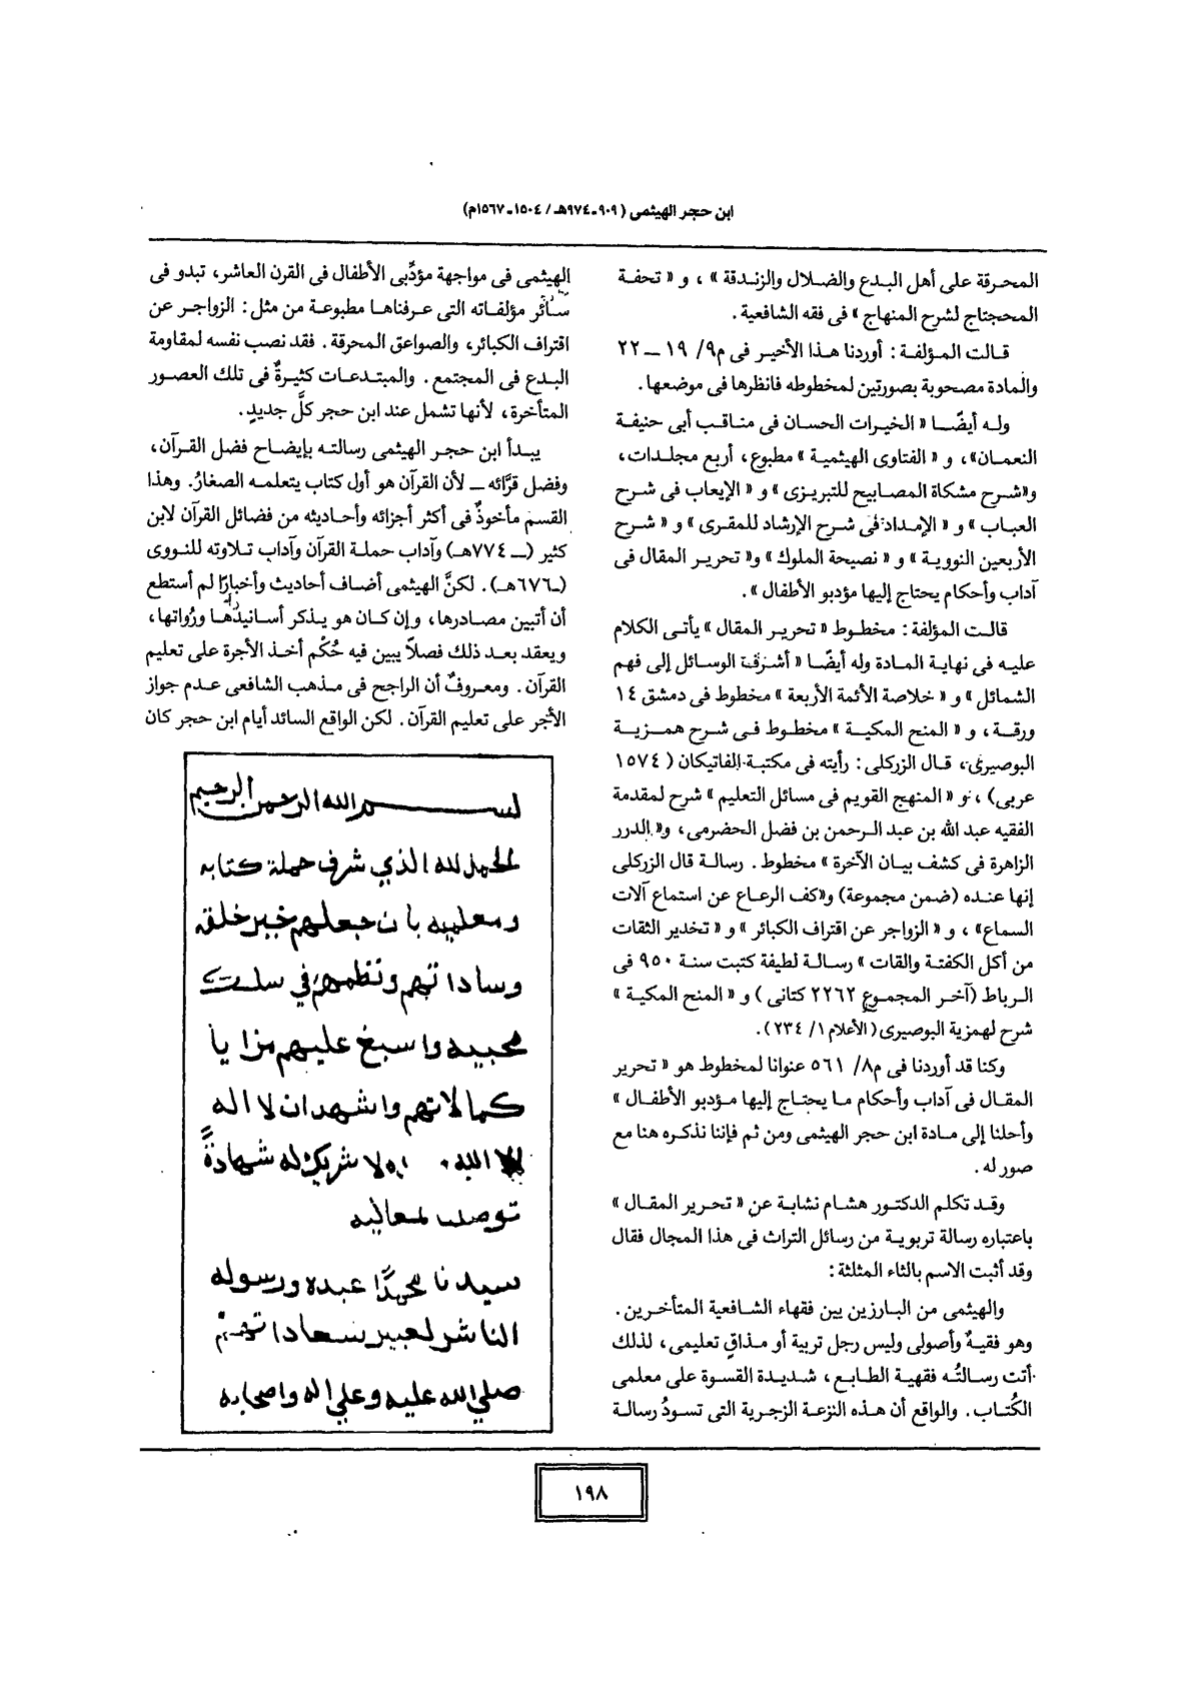 ابن حجر الهيثمى (٩٠٩-٩٧٤هـ / ١٥٠٤-١٥٦٧م)
المحرقة على أهل البدع والضلال والزندقة » ، و « تحفة
المحجتاج لشرح المنهاج » فى فقه الشافعية .
قالت المؤلفة : أوردنا هذا الأخير فى م٩/ ١٩ ــ ٢٢
والمادة مصحوبة بصورتين لمخطوطه فانظرها فى موضعها .
وله أيضًا « الخيرات الحسان فى مناقب أبى حنيفة
النعمان»، و « الفتاوى الهيثمية » مطبوع، أربع مجلدات،
و«شرح مشكاة المصابيح للتبريزى » و « الإيعاب فى شرح
العباب » و « الإمداد فى شرح الإرشاد للمقرى » و « شرح
الأربعين النووية » و « نصيحة الملوك » و« تحرير المقال فى
آداب وأحكام يحتاج إليها مؤدبو الأطفال » .
قالت المؤلفة : مخطوط « تحرير المقال » يأتى الكلام
عليه فى نهاية المادة وله أيضًا « أشرف الوسائل إلى فهم
الشمائل » و « خلاصة الأئمة الأربعة » مخطوط فى دمشق ١٤
ورقة ، و « المنح المكية » مخطوط فى شرح همزية
البوصيرى، قال الزركلى : رأيته فى مكتبة الفاتيكان ( ١٥٧٤
عربى) ، و « المنهج القويم فى مسائل التعليم » شرح لمقدمة
الفقيه عبد الله بن عبد الرحمن بن فضل الحضرمى ، و« الدرر
الزاهرة فى كشف بيان الآخرة » مخطوط . رسالة قال الزركلى
إنها عنده (ضمن مجموعة) و«كف الرعاع عن استماع آلات
السماع» ، و « الزواجر عن اقتراف الكبائر » و « تخدير الثقات
من أكل الكفتة والقات » رسالة لطيفة كتبت سنة ٩٥٠ فى
الرباط (آخر المجموع ٢٢٦٢ كتانى ) و « المنح المكية »
شرح لهمزية البوصيرى ( الأعلام ١/ ٢٣٤ ) .
وكنا قد أوردنا فى م٨/ ٥٦١ عنوانا لمخطوط هو « تحرير
المقال فى آداب وأحكام ما يحتاج إليها مؤدبو الأطفال »
وأحلنا إلى مادة ابن حجر الهيثمى ومن ثم فإننا نذكره هنا مع
صور له .
وقد تكلم الدكتور هشام نشابة عن « تحرير المقال »
باعتباره رسالة تربوية من رسائل التراث فى هذا المجال فقال
وقد أثبت الاسم بالثاء المثلثة :
والهيثمى من البارزين بين فقهاء الشافعية المتأخرين .
وهو فقيهٌ وأصولى وليس رجل تربية أو مذاقٍ تعليمى ، لذلك
أتت رسالتُه فقهية الطابع ، شديدة القسوة على معلمى
الكُتاب . والواقع أن هذه النزعة الزجرية التى تسودُ رسالة
الهيثمى فى مواجهة مؤدِّبى الأطفال فى القرن العاشر، تبدو فى
سائر مؤلفاته التى عرفناها مطبوعة من مثل : الزواجر عن
اقتراف الكبائر، والصواعق المحرقة . فقد نصب نفسه لمقاومة
البدع فى المجتمع . والمبتدعات كثيرةٌ فى تلك العصور
المتأخرة ، لأنها تشمل عند ابن حجر كلَّ جديدٍ .
يبدأ ابن حجر الهيثمى رسالته بإيضاح فضل القرآن ،
وفضل قرَّائه ــ لأن القرآن هو أول كتاب يتعلمه الصغارُ. وهذا
القسم مأخوذٌ فى أكثر أجزائه وأحاديثه من فضائل القرآن لابن
كثير (ــ ٧٧٤هـ) وآداب حملة القرآن وآداب تلاوته للنووى
(ــ٦٧٦هـ) . لكنَّ الهيثمى أضاف أحاديث وأخبارًا لم أستطع
أن أتبين مصادرها، وإن كان هو يذكر أسانيدَها ورُواتها،
ويعقد بعد ذلك فصلاً يبين فيه حُكْم أخذ الأجرة على تعليم
القرآن . ومعروفٌ أن الراجح فى مذهب الشافعى عدم جواز
الأجر على تعليم القرآن . لكن الواقع السائد أيام ابن حجر كان
بسم الله الرحمن الرحيم
الحمد لله الذي شرف حملة كتابه
ومعلميه بان جعلهم خير خلقه
وساداتهم ونظمهم في سلك
محبيه واسبغ عليهم مزايا
كمالاتهم واشهد ان لا اله
الا الله لا شريك له شهادةً
توصل لمعاليه
سيدنا محمدًا عبده ورسوله
الناشر لعبير سعاداتهم
صلي الله عليه وعلي اله واصحابه
١٩٨